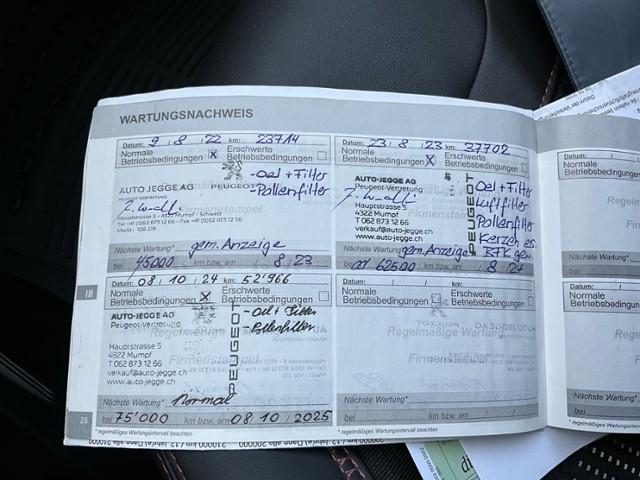 WARTUNGSNACHWEIS
Datum: 9 / 8 / 22 km: 23714
Normale Betriebsbedingungen X
Erschwerte Betriebsbedingungen
-Oel + Filter
-Pollenfilter
AUTO JEGGE AG PEUGEOT
Hauptstrasse 5 - 4322 Mumpf / Schweiz
Nächste Wartung* gem. Anzeige
bei 45000 km bzw. am 8 / 23
Datum: 23 / 8 / 23 km: 37702
Normale Betriebsbedingungen X
Erschwerte Betriebsbedingungen
AUTO JEGGE AG
Peugeot-Vertretung
Hauptstrasse 5
4322 Mumpf
T 062 873 12 66
verkauf@auto-jegge.ch
www.auto-jegge.ch
PEUGEOT
Oel + Filter
Luftfilter
Pollenfilter
Kerzen ers.
BFK gew.
Nächste Wartung* gem. Anzeige
62500 km bzw. am 8 / 24
Datum: 08 / 10 / 24 km: 52'966
Normale Betriebsbedingungen X
Erschwerte Betriebsbedingungen
AUTO JEGGE AG
Peugeot-Vertretung
Hauptstrasse 5
4322 Mumpf
T 062 873 12 66
verkauf@auto-jegge.ch
www.auto-jegge.ch
PEUGEOT
- Oel + Filter
Pollenfilter
Nächste Wartung* Normal
bei 75'000 km bzw. am 08 / 10 / 2025
* regelmäßiges Wartungsintervall beachten
Datum: / / km:
Normale Betriebsbedingungen
Erschwerte Betriebsbedingungen
Nächste Wartung*
bei km bzw. am / /
* regelmäßiges Wartungsintervall beachten
III
26